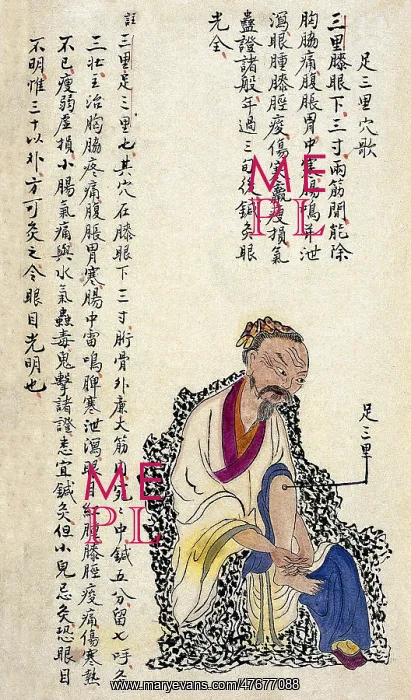 足三里穴歌
三里膝眼下三寸兩筋間能除
胸脇痛腹脹胃中寒腸鳴并泄
瀉眼腫膝脛痠傷寒羸瘦損氣
蠱證諸般年過三旬後鍼灸眼
光全
註三里足三里也其穴在膝眼下三寸胻骨外廉大筋內宛〻中鍼五分留七呼灸
三壯主治胸脇疼痛腹脹胃寒腸中雷鳴脾寒泄瀉眼目紅腫膝脛痠痛傷寒熱
不已瘦弱虛損小腸氣痛與水氣蠱毒鬼擊諸證悉宜鍼灸但小兒忌灸恐眼目
不明惟三十以外方可灸之令眼目光明也
足三里
ME
PL
ME
PL
www.maryevans.com/47677088